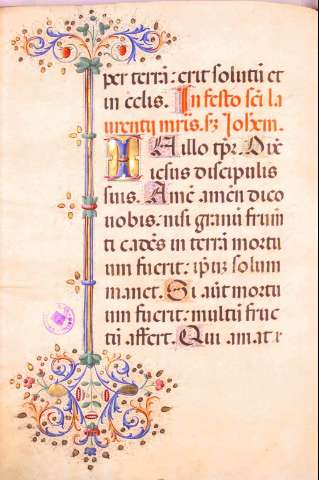 per terrā: erit solutū et
in celis. In festo sc̄i la
urentij mr̄is. sz̄ Iohem̄.
In illo tp̄r. Dix̄
iesus discipulis
suis. Amē amēn dico
uobis: nisi granū frum̄
ti cadēs in terrā mortu
um fuerit: ip̄m solum
manet. Si aūt mortu
um fuerit: multū fruc
tū affert. Qui amat